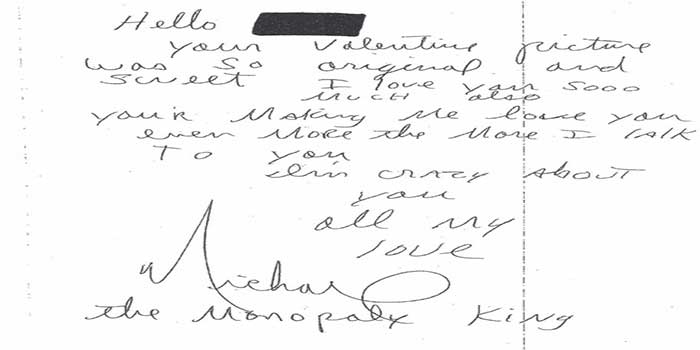 Hello
your Valentine picture
was so original and
sweet I love you sooo
much also
your Making Me love you
even More the More I talk
To you
I'm crazy about
you
all my
love
"Michael
the Monopoly King